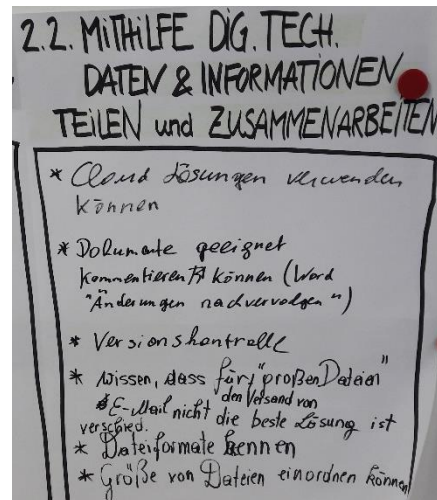 2.2. MITHILFE DIG. TECH.
DATEN & INFORMATIONEN
TEILEN und ZUSAMMENARBEITEN
* Cloud Lösungen verwenden
können
* Dokumente geeignet
kommentieren können (Word
"Änderungen nachvervolgen")
* Versionskontrolle
* Wissen, dass für "großen Dateien"
den Versand von
verschied. E-Mail nicht die beste Lösung ist
* Dateiformate kennen
* Größe von Dateien einordnen können